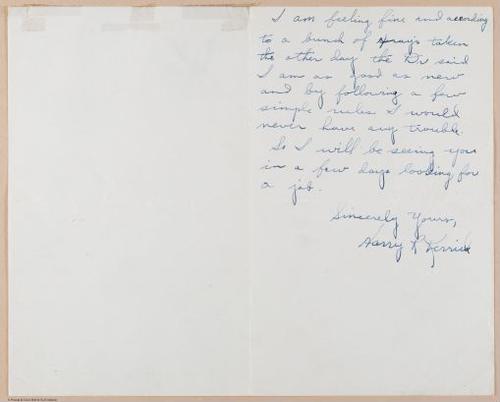 I am feeling fine and according
to a bunch of xrays taken
the other day the Dr said
I am as good as new
and by following a few
simple rules I would
never have any trouble.
So I will be seeing you
in a few days looking for
a job.
Sincerely Yours,
Harry R Derrick